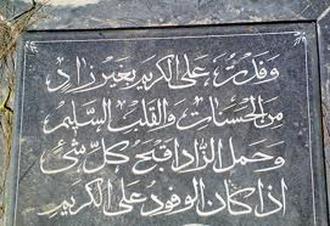 وفدت على الكريم بغير زاد
من الحسنات والقلب السليم
وحمل الزاد اقبح كل شئ
اذا كان الوفود على الكريم